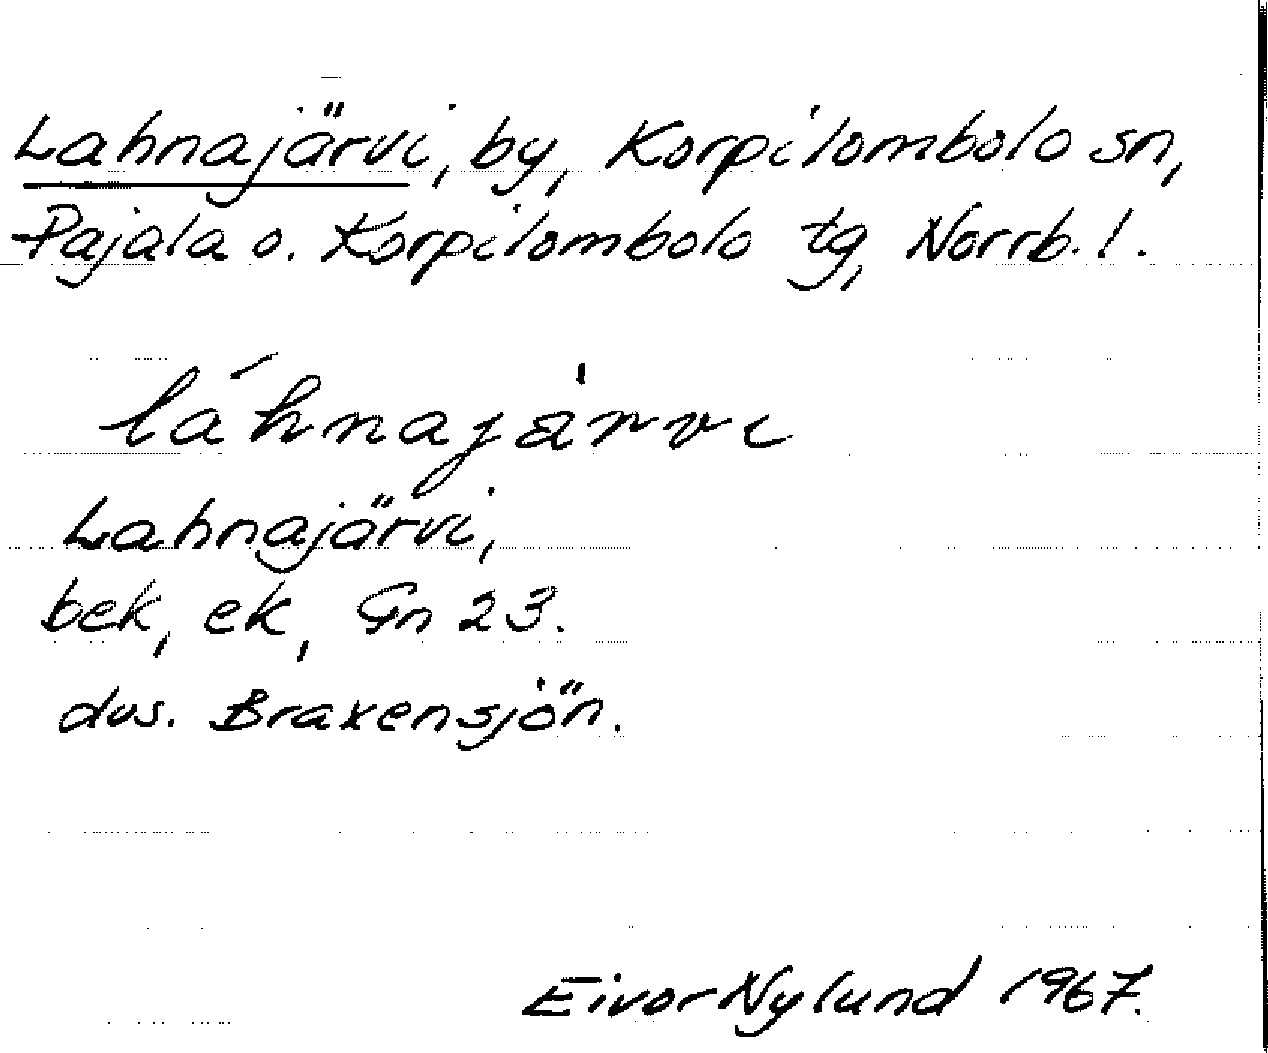 Lahnajärvi, by, Korpilombolo sn,
Pajala o. Korpilombolo tg, Norrb. l.
láhnajärvi
Lahnajärvi,
bek, ek, Gn 23.
dvs. Braxensjön.
Eivor Nylund 1967.